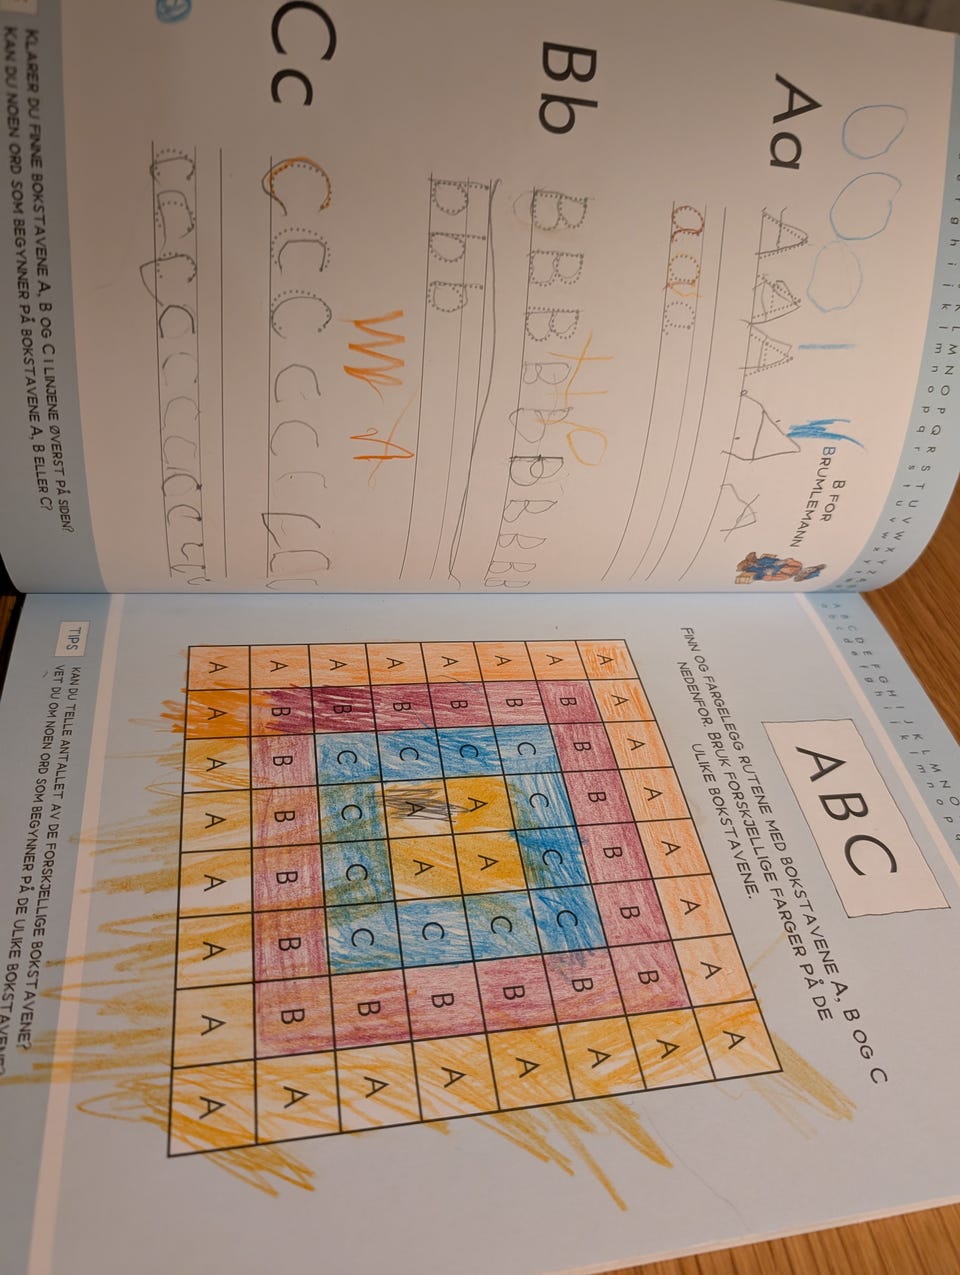 K L M N O P Q R S T U V W X Y Z
g h i j k l m n o p q r s t u v w x y z
B FOR
BRUMLEMANN
Aa
A A A A A
a a a a
Bb
B B B B B B B B B
b b b
A
Cc
C C C C C C
c c c c c c c c
KLARER DU FINNE BOKSTAVENE A, B OG C I LINJENE ØVERST PÅ SIDEN?
KAN DU NOEN ORD SOM BEGYNNER PÅ BOKSTAVENE A, B ELLER C?
A B C D E F G H I J K L M N O
a b c d e f g h i j k l m n o p
ABC
FINN OG FARGELEGG RUTENE MED BOKSTAVENE A, B OG C
NEDENFOR. BRUK FORSKJELLIGE FARGER PÅ DE
ULIKE BOKSTAVENE.
A A A A A A A A
A B B B B B B A
A B C C C C B A
A B C A A C B A
A B C A A C B A
A B C C C C B A
A B B B B B B A
A A A A A A A A
TIPS
KAN DU TELLE ANTALLET AV DE FORSKJELLIGE BOKSTAVENE?
VET DU OM NOEN ORD SOM BEGYNNER PÅ DE ULIKE BOKSTAVENE?